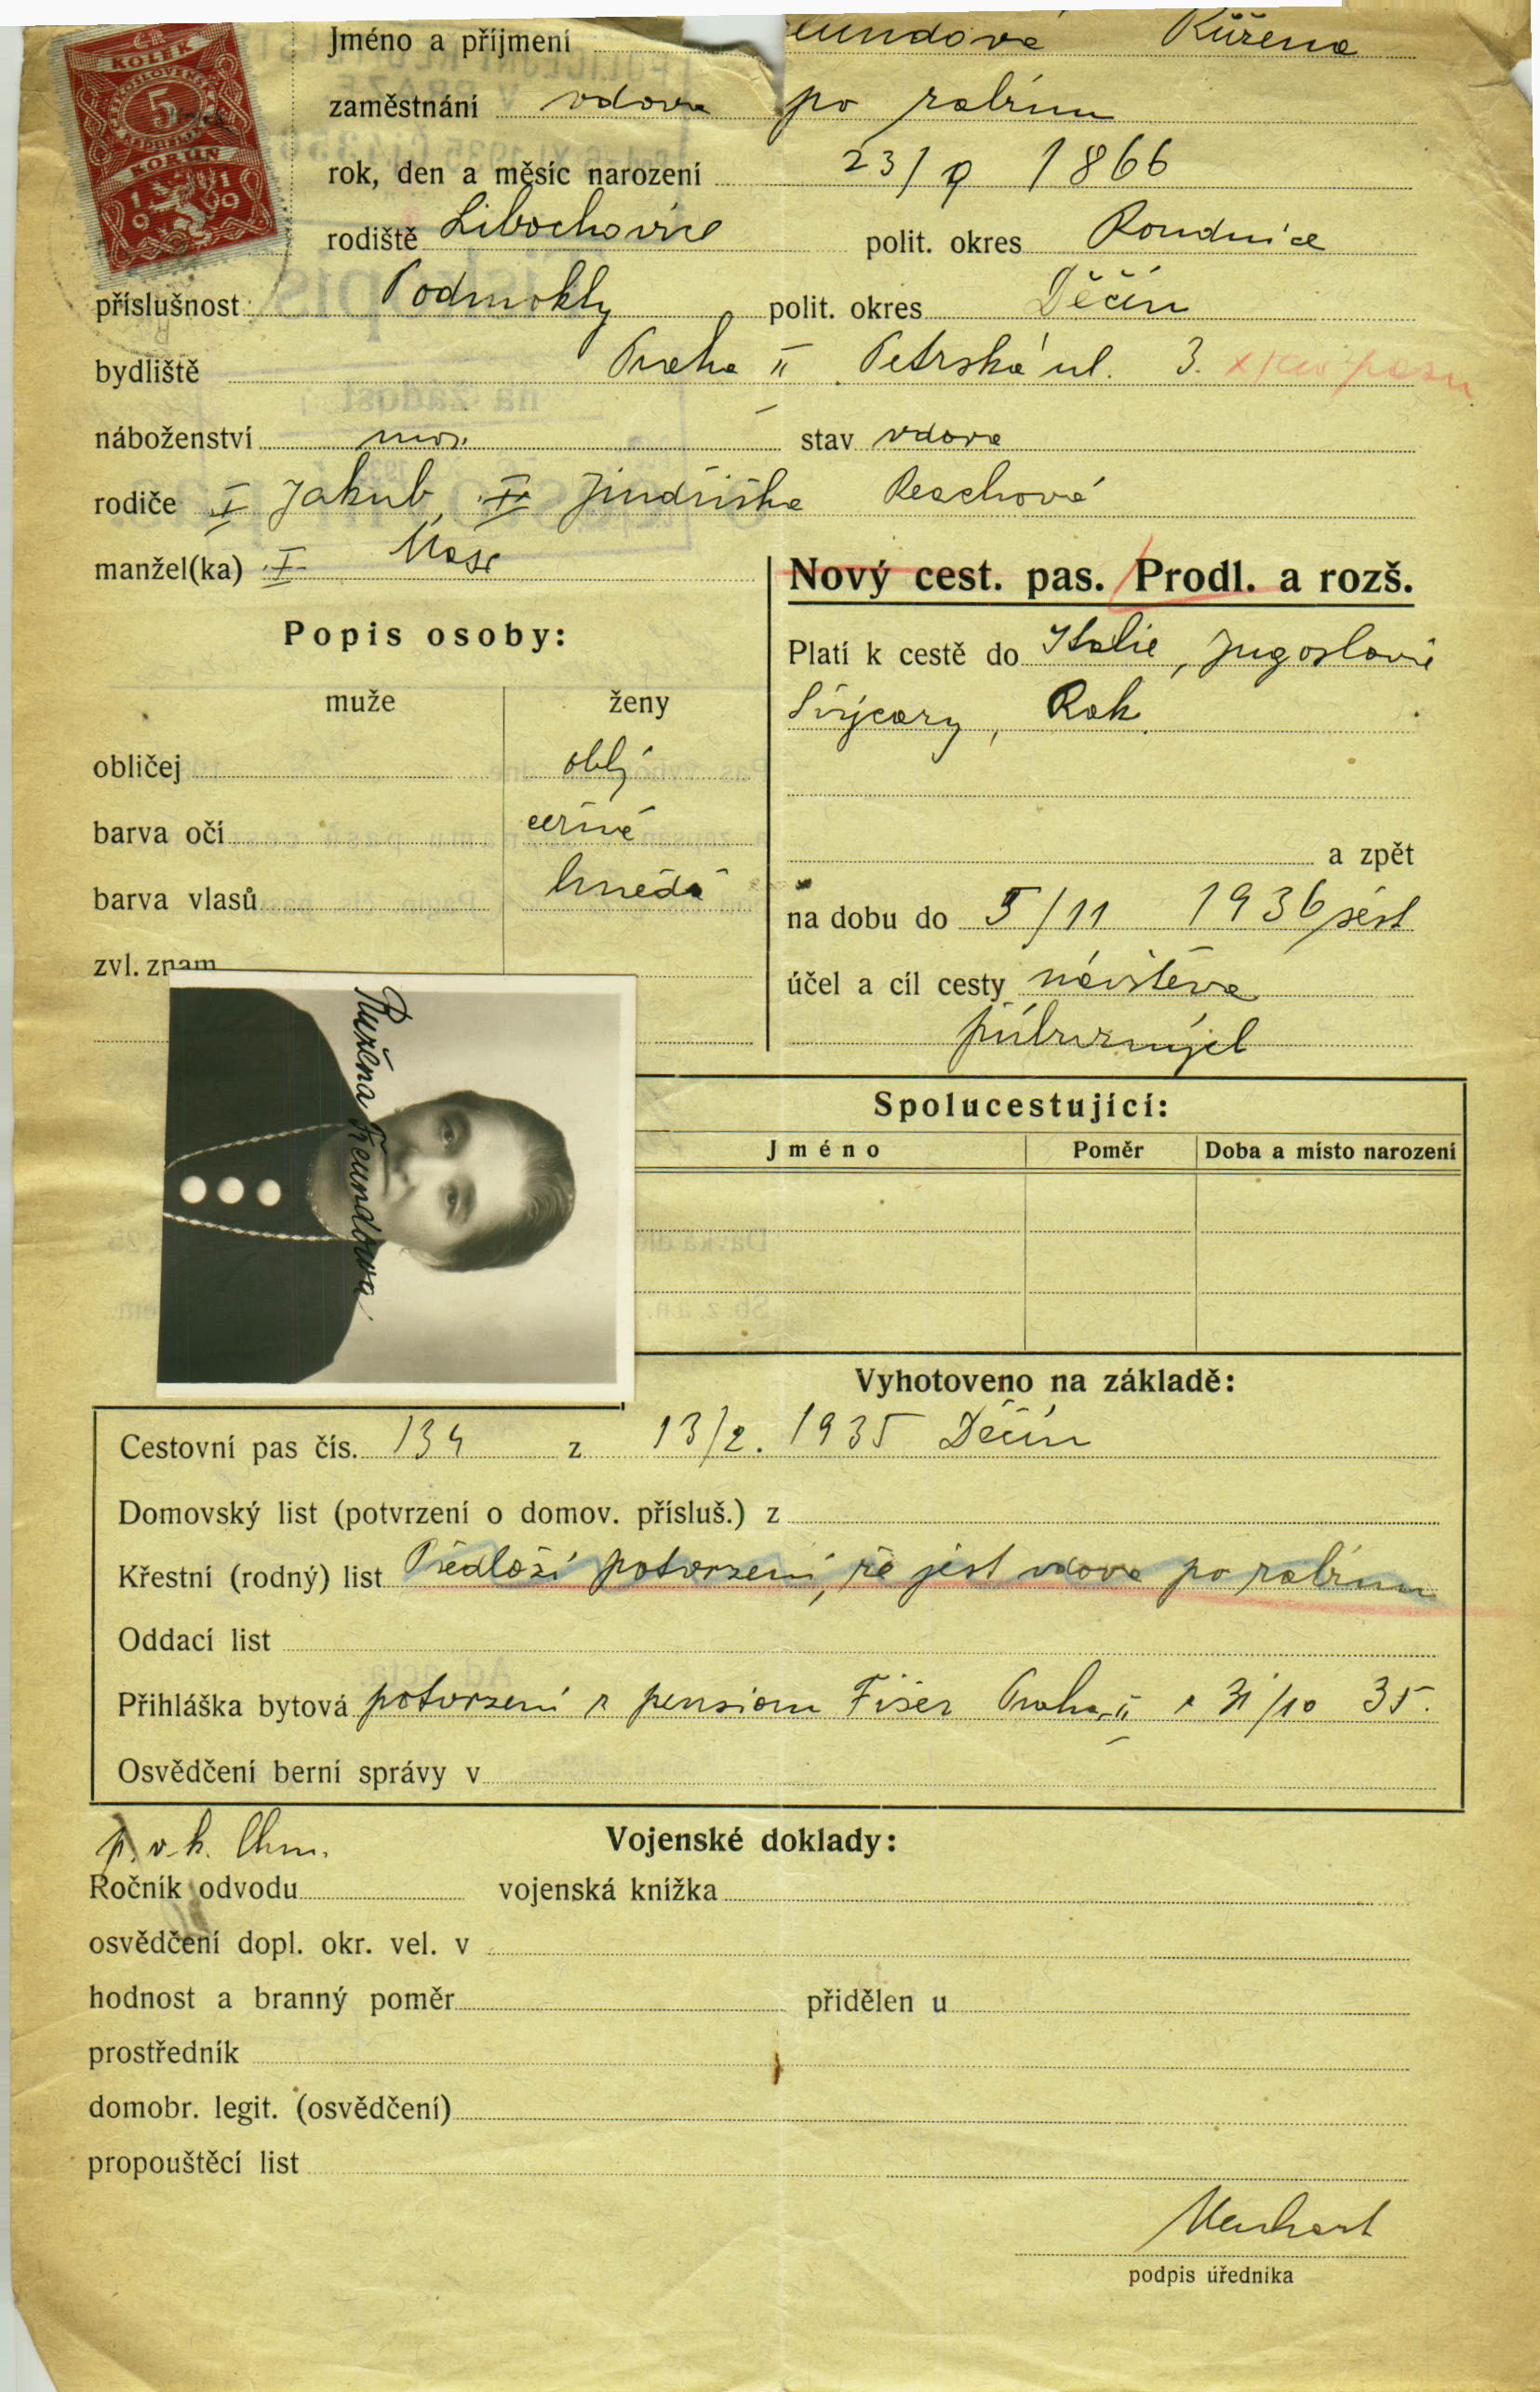 ČR
KOLEK
5
KORUN
1919
Jméno a příjmení Růžena
zaměstnání vdova po rabínu
rok, den a měsíc narození 23/9 1866
rodiště Libochovice polit. okres Roudnice
příslušnost Podmokly polit. okres Děčín
bydliště Praha II Petrská ul. 3.
náboženství mos. stav vdova
rodiče I Jakub, II Jindřiška Reachová
manžel(ka) I
Nový cest. pas. / Prodl. a rozš.
Popis osoby:
muže ženy
obličej oblý
barva očí černé
barva vlasů hnědá
zvl. znam
Platí k cestě do Italie, Jugoslavie
Švýcary, Rak.
a zpět
na dobu do 5/11 1936 šest
účel a cíl cesty návštěva
příbuzných
Růžena Freundova
Spolucestující:
Jméno Poměr Doba a místo narození
Vyhotoveno na základě:
Cestovní pas čís. 134 z 13/2. 1935 Děčín
Domovský list (potvrzení o domov. přísluš.) z
Křestní (rodný) list Předloží potvrzení, že jest vdova po rabínu
Oddací list
Přihláška bytová potvrzení z pensionu Fišer Praha II z 31/10 35.
Osvědčení berní správy v
p. v. h.
Vojenské doklady:
Ročník odvodu vojenská knížka
osvědčení dopl. okr. vel. v
hodnost a branný poměr přidělen u
prostředník
domobr. legit. (osvědčení)
propouštěcí list
podpis úředníka